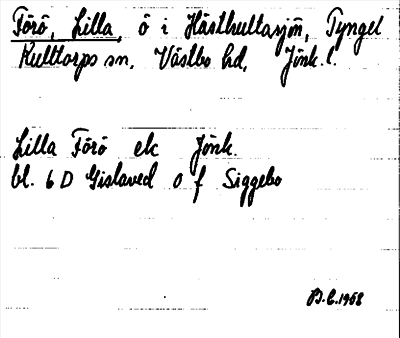 Förö, Lilla, ö i Hästhultasjön, Tyngel
Kulltorps sn, Västbo hd, Jönk. l.
Lilla Förö ek Jönk.
bl. 6 D Gislaved o f Siggebo
B.C. 1958